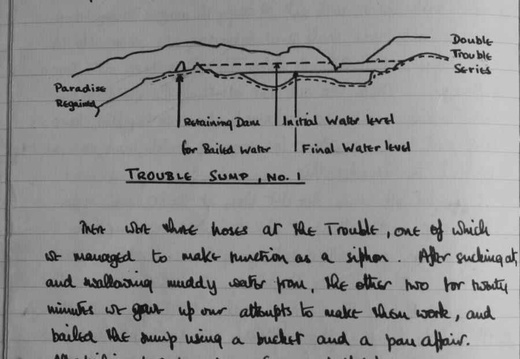 Double
Trouble
Series
Paradise
Regained
Retaining Dam
for Bailed Water
Initial Water level
Final Water level
TROUBLE SUMP, NO. 1
There were three hoses at the Trouble, one of which
we managed to make function as a siphon. After sucking at,
and swallowing muddy water from, the other two for twenty
minutes we gave up our attempts to make them work, and
bailed the sump using a bucket and a pan affair.